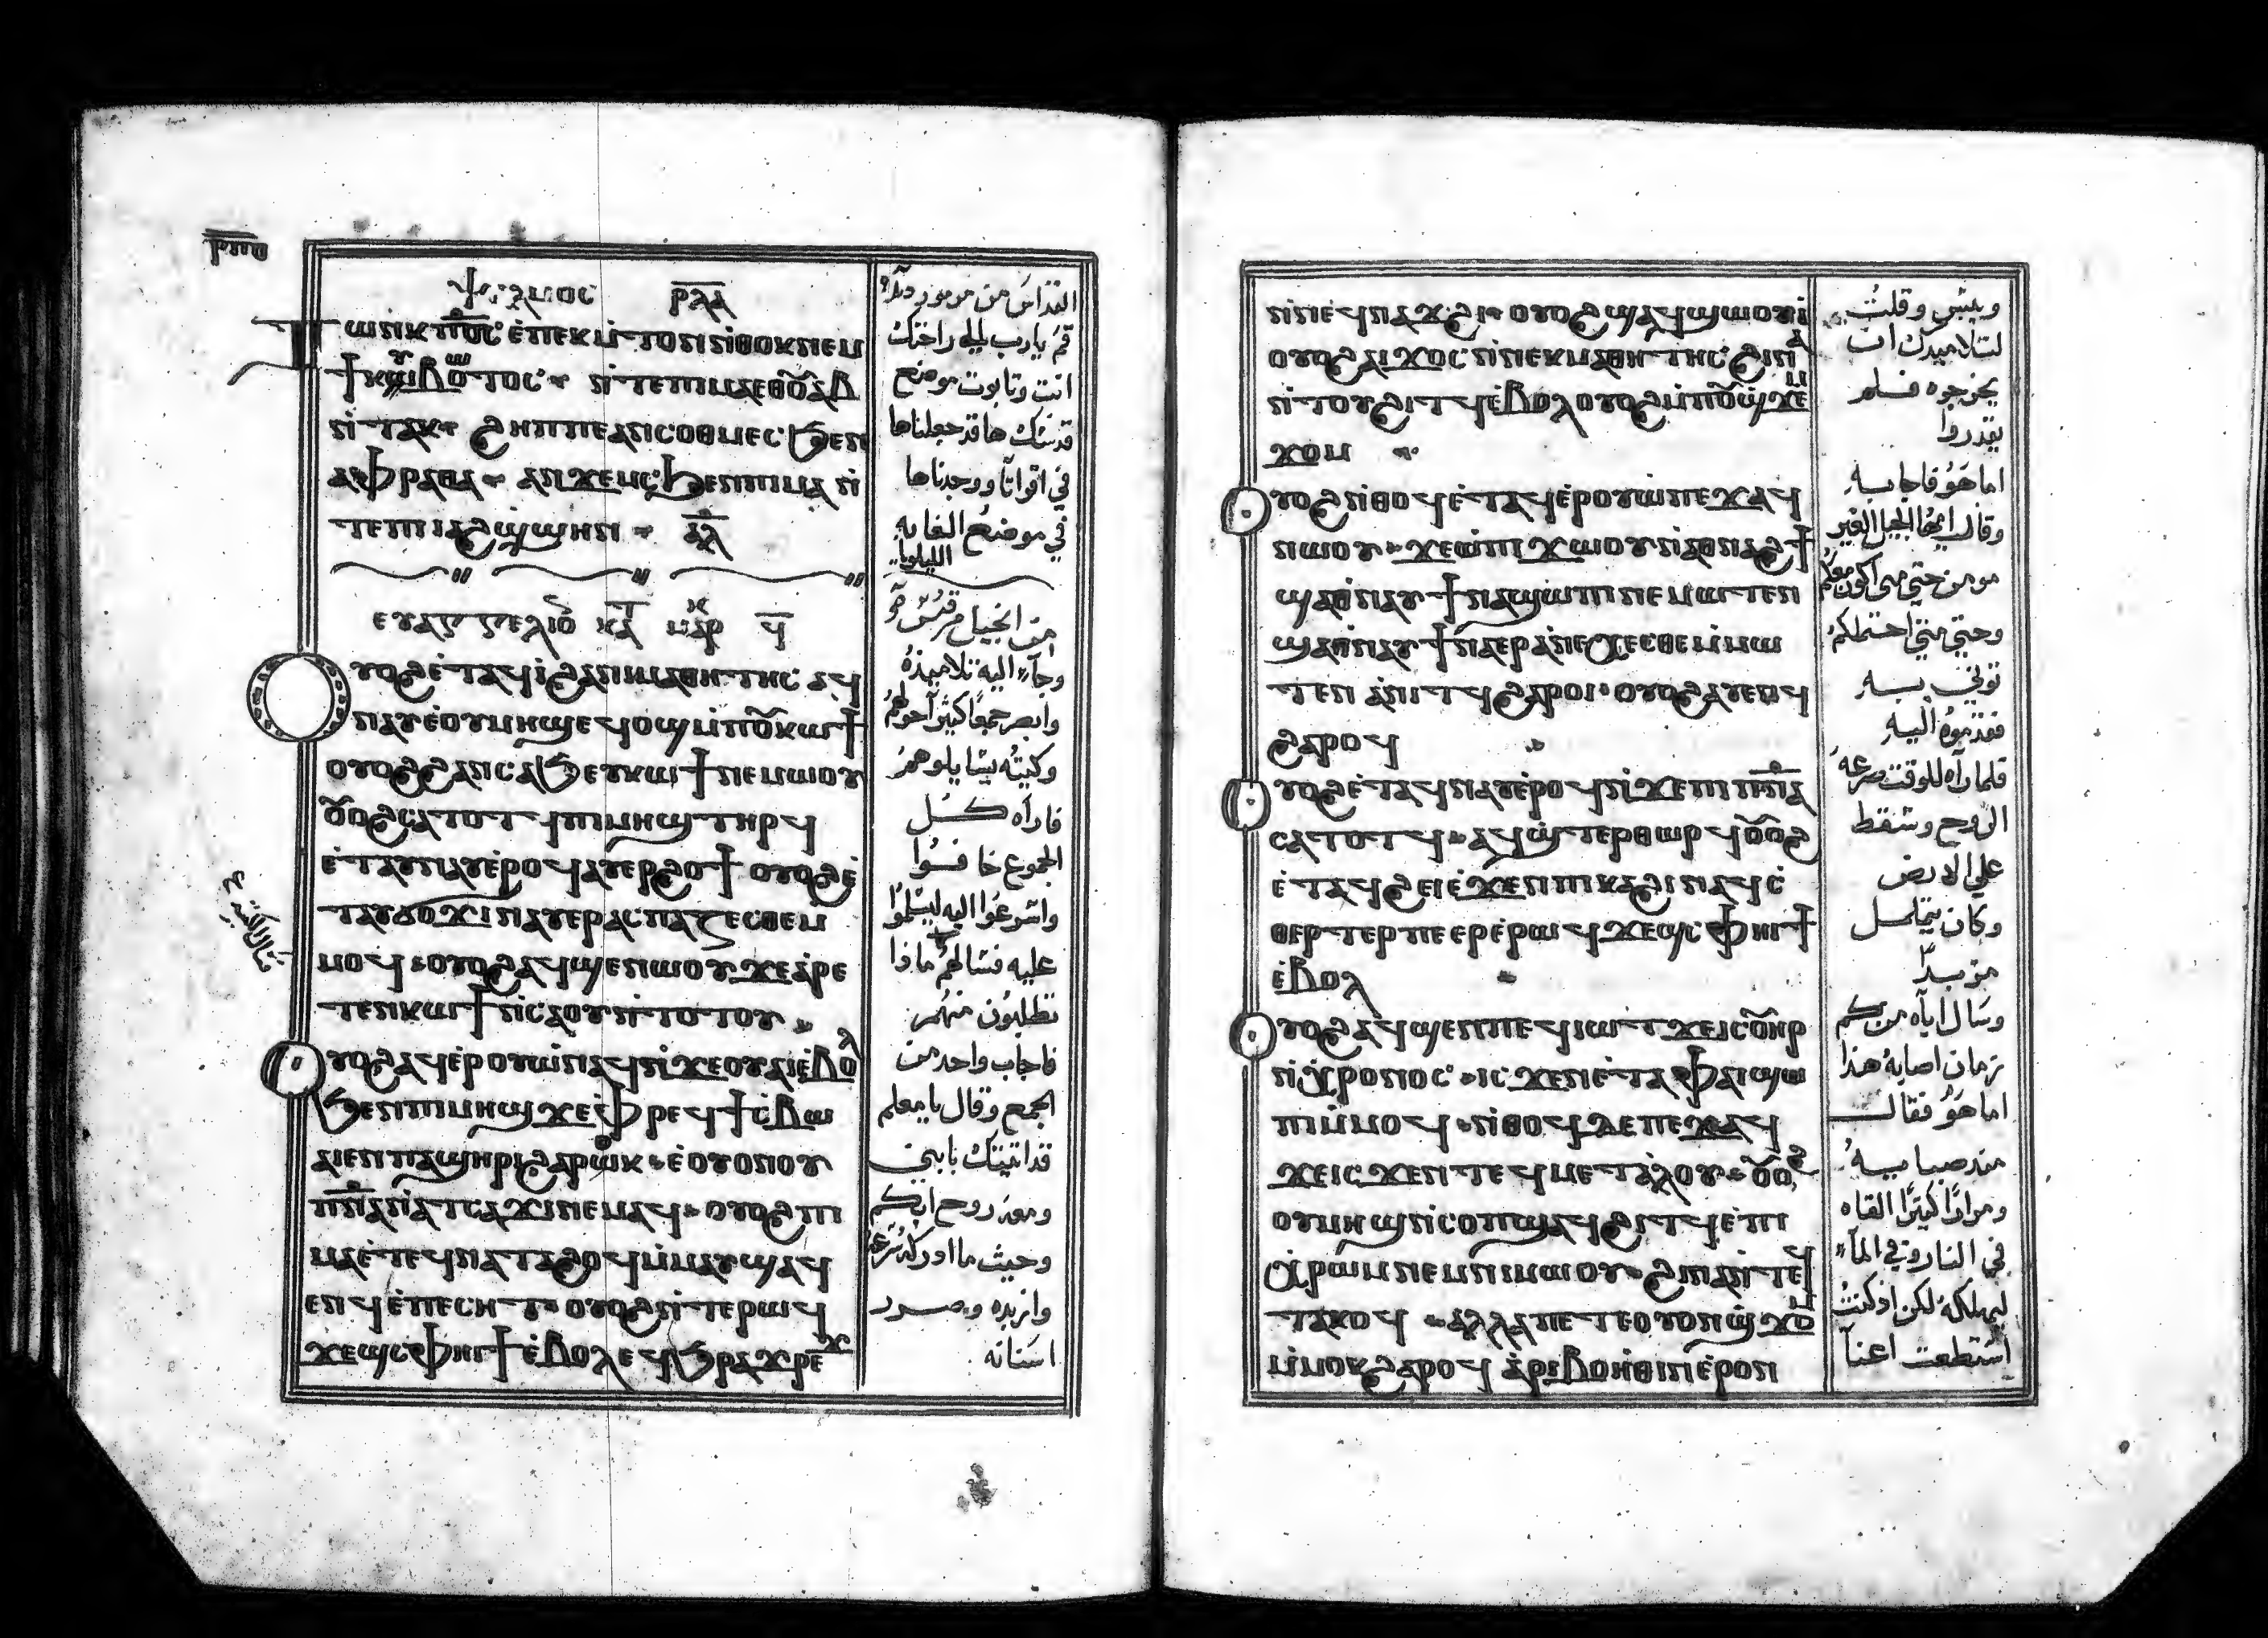 ⲣⲡⲑ
ⲯⲁⲗⲙⲟⲥ ⲣⲗⲁ
ⲧⲱⲛⲕ ⲡ̅ⲟ̅ⲥ̅ ⲉ̀ⲡⲉⲕⲙ̀ⲧⲟⲛ ⲛ̀ⲑⲟⲕ ⲛⲉⲙ
ϯⲕⲩⲃⲱⲧⲟⲥ ⲛ̀ⲧⲉ ⲡⲓⲙⲁ ⲉⲑⲟⲩⲁⲃ
ⲛ̀ⲧⲁⲕ ϩⲏⲡⲡⲉ ⲁⲛⲥⲟⲑⲙⲉⲥ ϧⲉⲛ
ⲁⲫⲣⲁⲑⲁ ⲁⲛϫⲉⲙⲥ ϧⲉⲛ ⲡⲓⲙⲁ ⲛ̀
ⲧⲉ ⲡⲓⲁϩϣ̀ϣⲏⲛ ⲁ̅ⲗ̅
ⲉⲩⲁⲅⲅⲉⲗⲓⲟ ⲕⲁⲧ ⲙⲁⲣⲕ ϥ̅
ⲟⲩⲟϩ ⲉ̀ⲧⲁϥⲓ̀ ϩⲁ ⲛⲓⲙⲁⲑⲏⲧⲏⲥ ⲁϥ
ⲛⲁⲩ ⲉ̀ⲟⲩⲙⲏϣ ⲉϥⲟϣ ⲙ̀ⲡⲟⲩⲕⲱϯ
ⲟⲩⲟϩ ϩⲁⲛⲥⲁϧ ⲉⲩⲕⲱϯ ⲛⲉⲙⲱⲟⲩ
ⲟⲩⲟϩ ⲥⲁⲧⲟⲧϥ ⲡⲓⲙⲏϣ ⲧⲏⲣϥ
ⲉ̀ⲧⲁⲩⲛⲁⲩ ⲉ̀ⲣⲟϥ ⲁⲩⲉⲣϩⲟϯ ⲟⲩⲟϩ ⲉ̀
ⲧⲁⲩϭⲟϫⲓ ⲛⲁⲩⲉⲣⲁⲥⲡⲁⲍⲉⲥⲑⲉ ⲙ̀
ⲙⲟϥ ⲟⲩⲟϩ ⲁϥϣⲉⲛⲱⲟⲩ ϫⲉ ⲁ̀ⲣⲉ
ⲧⲉⲛⲕⲱϯ ⲛ̀ⲥⲁ ⲟⲩ ⲛ̀ⲧⲟⲧⲟⲩ
ⲟⲩⲟϩ ⲁϥⲉ̀ⲣⲟⲩⲱ̀ ⲛⲁϥ ⲛ̀ϫⲉ ⲟⲩⲁⲓ ⲉ̀ⲃⲟⲗ
ϧⲉⲛ ⲡⲓⲙⲏϣ ϫⲉ ⲫ̀ⲣⲉϥϯⲥ̀ⲃⲱ
ⲁⲓⲉⲛ ⲡⲁϣⲏⲣⲓ ϩⲁⲣⲟⲕ ⲉ̀ⲟⲩⲟⲛ ⲟⲩ
ⲡ̅ⲛ̅ⲁ̅ ⲛ̀ⲁⲧⲥⲁϫⲓ ⲛⲉⲙⲁϥ ⲟⲩⲟϩ ⲡⲓ
ⲙⲁ ⲉ̀ⲧⲉϥⲛⲁⲧⲁϩⲟϥ ⲙ̀ⲙⲁⲩ ϣⲁϥ
ⲉⲛϥ ⲉ̀ⲡⲉⲥⲏⲧ ⲟⲩⲟϩ ⲛ̀ⲧⲉⲣⲱϥ
ϫⲉϣⲥⲫⲏⲓϯ ⲉ̀ⲃⲟⲗ ⲉϥϧⲣⲁϫⲣⲉϫ
القداس من مزمور
قم يارب الى راحتك
انت وتابوت موضع
قدسك ها قد جعلناها
في افراتا ووجدناها
في موضع الغابه
الليلويا
من انجيل مرقس
وجاء اليه تلاميذه
وابصر جمعا كثيرا حولهم
وكتبه يسايلوهم
فاراه كل
الجموع خافسوا
واسرعوا اليه ليسلموا
عليه فسالهم ماذا
تطلبون منهم
فاجاب واحد من
الجمع وقال يا معلم
قد اتيتك بابني
ومعه روح ابكم
وحيث ما ادركه
وازبده ويصرد
اسنانه
ⲛ̀ⲛⲉϥⲛⲁϫϩⲓ ⲟⲩⲟϩ ϣⲁϥϣⲱⲟⲩⲓ̀
ⲟⲩⲟϩ ⲁⲓϫⲟⲥ ⲛ̀ⲛⲉⲕⲙⲁⲑⲏⲧⲏⲥ ϩⲓⲛⲁ
ⲛ̀ⲧⲟⲩϩⲓⲧϥ ⲉ̀ⲃⲟⲗ ⲟⲩⲟϩ ⲙ̀ⲡⲟⲩϣ̀ϫⲉⲙ
ϫⲟⲙ
ⲟⲩⲟϩ ⲛ̀ⲑⲟϥ ⲉ̀ⲧⲁϥⲉ̀ⲣⲟⲩⲱ̀ ⲡⲉϫⲁϥ
ⲛⲱⲟⲩ ϫⲉ ⲱ̀ ⲡⲓϫⲱⲟⲩ ⲛ̀ⲁⲑⲛⲁϩϯ
ϣⲁⲑⲛⲁⲩ ϯⲛⲁϣⲱⲡⲓ ⲛⲉⲙⲱⲧⲉⲛ
ϣⲁⲑⲛⲁⲩ ϯⲛⲁⲉⲣⲁ̀ⲛⲉⲭⲉⲥⲑⲉ ⲙ̀ⲙⲱ
ⲧⲉⲛ ⲁ̀ⲛⲓⲧϥ ϩⲁⲣⲟⲓ ⲟⲩⲟϩ ⲁⲩⲉⲛϥ
ϩⲁⲣⲟϥ
ⲟⲩⲟϩ ⲉ̀ⲧⲁϥⲛⲁⲩ ⲉ̀ⲣⲟϥ ⲛ̀ϫⲉ ⲡⲓⲡ̅ⲛ̅ⲁ̅
ⲥⲁⲧⲟⲧϥ ⲁϥϣ̀ⲧⲉⲣⲑⲱⲣϥ ⲟⲩⲟϩ
ⲉ̀ⲧⲁϥϩⲉⲓ ⲉ̀ϫⲉⲛ ⲡⲓⲕⲁϩⲓ ⲛⲁϥⲥ̀
ⲑⲉⲣⲧⲉⲣ ⲡⲉ ⲉⲣⲉ̀ⲣⲱϥ ϫⲉϣⲥⲫⲏⲓϯ
ⲉ̀ⲃⲟⲗ
ⲟⲩⲟϩ ⲁϥϣⲉⲛ ⲡⲉϥⲓⲱⲧ ϫⲉ ⲓⲥ ⲟⲩⲏⲣ
ⲛ̀ⲭⲣⲟⲛⲟⲥ ⲓⲥϫⲉⲛ ⲉ̀ⲧⲁ ⲫⲁⲓ ϣⲱ
ⲡⲓ ⲙ̀ⲙⲟϥ ⲛ̀ⲑⲟϥ ⲇⲉ ⲡⲉϫⲁϥ
ϫⲉ ⲓⲥϫⲉⲛ ⲧⲉϥⲙⲉⲧⲁ̀ⲗⲟⲩ ⲟⲩⲟϩ
ⲟⲩⲙⲏϣ ⲛ̀ⲥⲟⲡ ϣⲁϥϩⲓⲧϥ ⲉ̀ⲡⲓ
ⲭ̀ⲣⲱⲙ ⲛⲉⲙ ⲛⲓⲙⲱⲟⲩ ϩⲓⲛⲁ ⲛ̀ⲧⲉϥ
ⲧⲁⲕⲟϥ ⲁⲗⲗⲁ ⲡⲉⲧⲉ ⲟⲩⲟⲛ ϣ̀ϫⲟⲙ
ⲙ̀ⲙⲟⲕ ϩⲁⲣⲟϥ ⲁ̀ⲣⲓⲃⲟⲏ̀ⲑⲓⲛ ⲉ̀ⲣⲟⲛ
وييبس وقلت
لتلاميدك ان
يخرجوه فلم
يقدروا
اما هو فاجابه
وقال ايها الجيل الغير
مومن حتي متي اكون معكم
وحتي متي احتملكم
توني به
فقدموه اليه
فلما راه للوقت صرعه
الروح وسقط
علي الارض
وكان يتململ
مزبدا
وسال اباه من كم
زمان اصابه هذا
اما هو فقال
منذ صباييه
ومرارا كثيرا القاه
في النار وفي الماء
ليهلكه لكن اذ كنت
استطعت اعنا